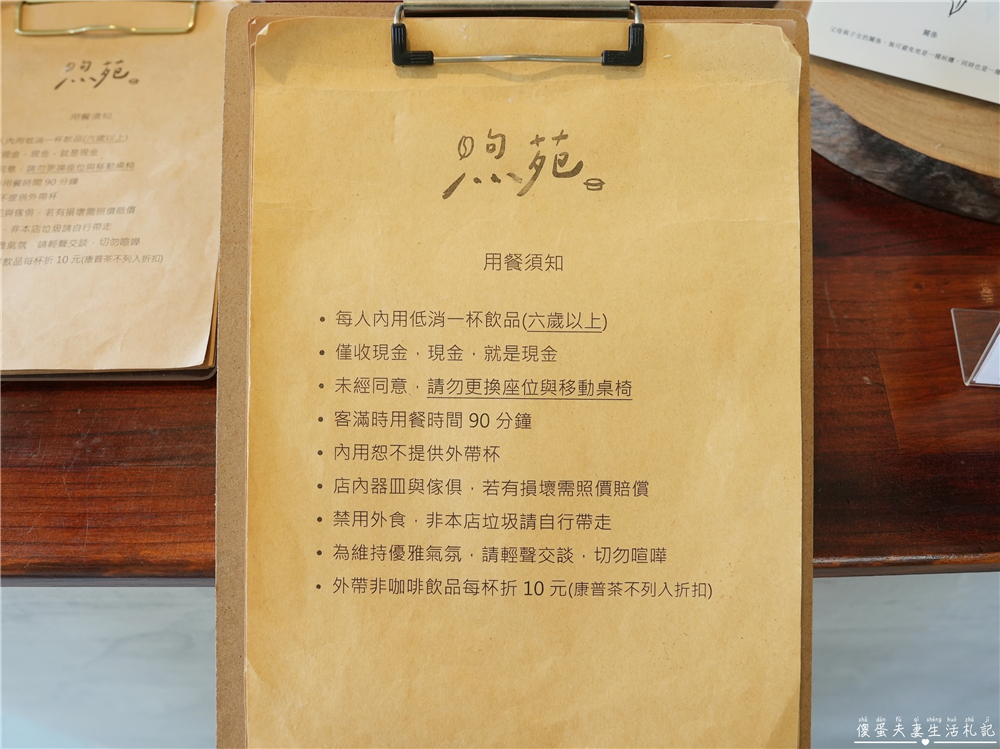 煦苑
用餐須知
• 每人內用低消一杯飲品(六歲以上)
• 僅收現金，現金，就是現金
• 未經同意，請勿更換座位與移動桌椅
• 客滿時用餐時間 90 分鐘
• 內用恕不提供外帶杯
• 店內器皿與傢俱，若有損壞需照價賠償
• 禁用外食，非本店垃圾請自行帶走
• 為維持優雅氣氛，請輕聲交談，切勿喧嘩
• 外帶非咖啡飲品每杯折 10 元(康普茶不列入折扣)
煦苑
用餐須知
人內用低消一杯飲品(六歲以上)
現金，現金，就是現金
請勿更換座位與移動桌椅
用餐時間 90 分鐘
不提供外帶杯
與傢俱，若有損壞需照價賠償
，非本店垃圾請自行帶走
氣氛，請輕聲交談，切勿喧嘩
飲品每杯折 10 元(康普茶不列入折扣)
關係
父母與子女的關係，無可避免地是一種
shǎ dàn fū qī shēng huó zhá jì
傻蛋夫妻生活札記